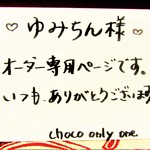 ♡ ゆみちん様 ♡
オーダー専用ページです。
いつも、ありがとうございます
choco only one